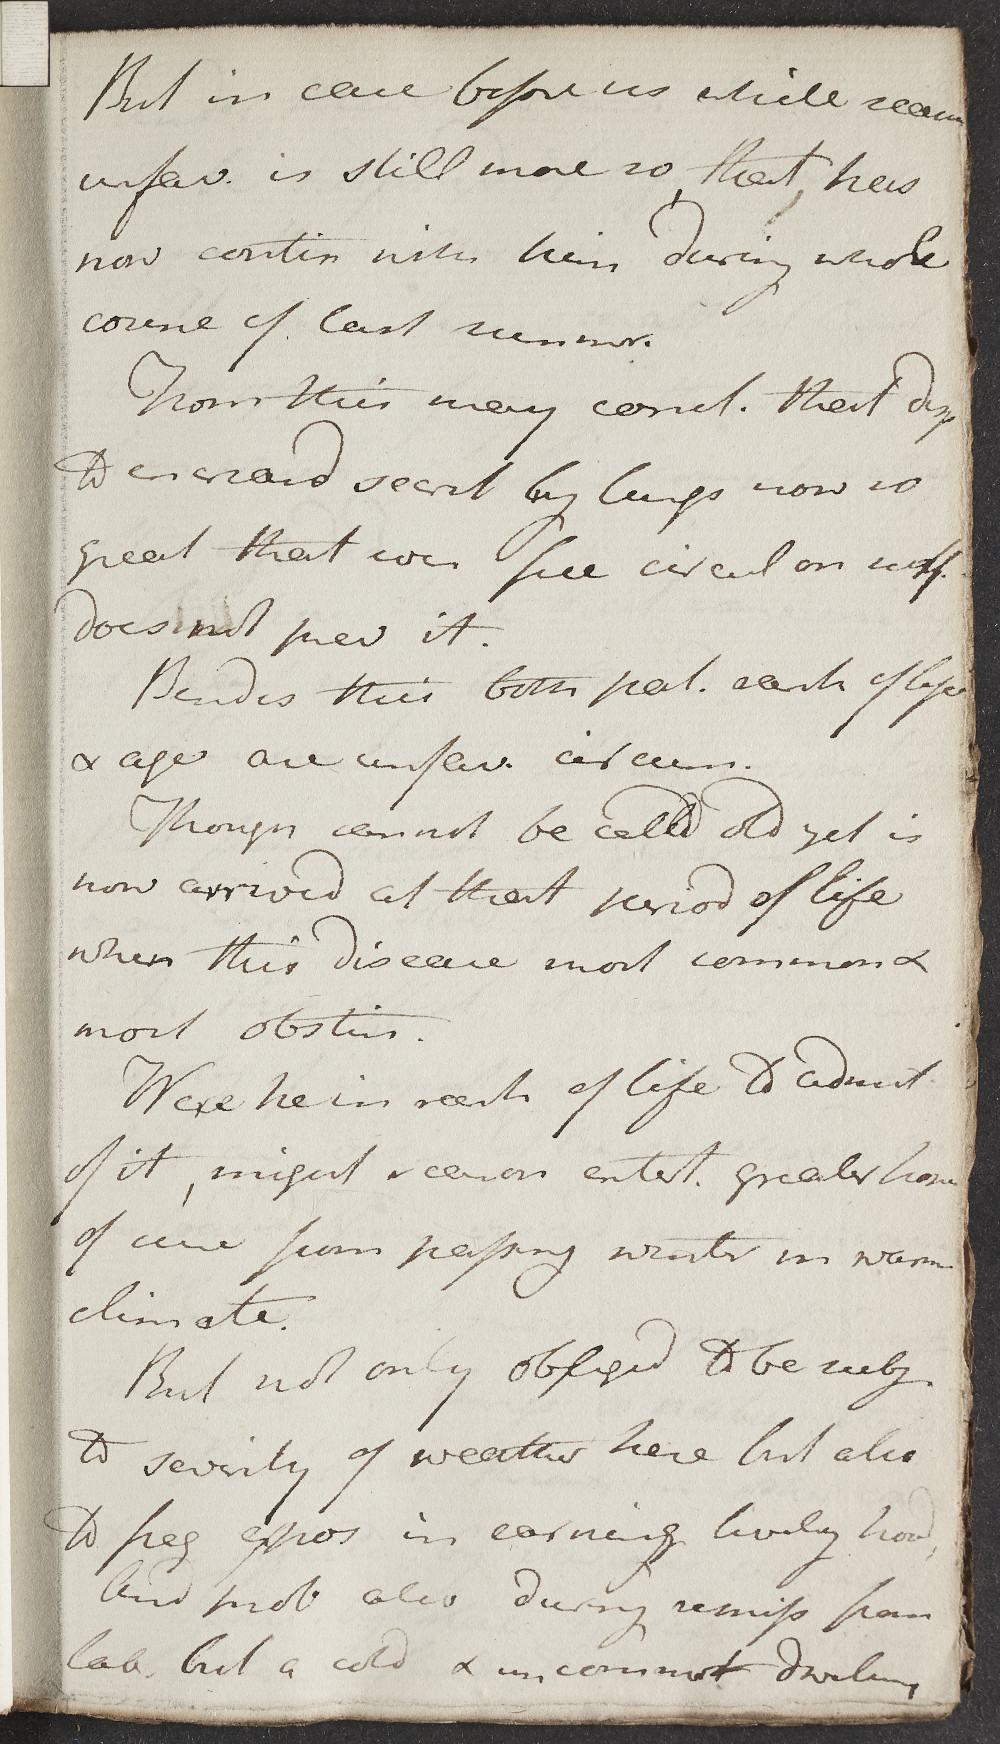 But in case before us while seem
unfav. is still more so, that, has
now contin with him during whole
course of last summr.
From this may concl. that disp
to increasd secret by lungs now so
great that even free circul on surf.
does not prev it.
Besides this both pat. rank of life
& age are unfav. circum.
Though cannot be calld old yet is
now arrived at that period of life
when this disease most common &
most obstin.
Were he in rank of life to admit
of it, might reason entert. greater hope
of cure from passing winter in warm
climate.
But not only obliged to be subj
to severity of weather here but also
to freq expos in earning livelyhood,
And prob also during remiss from
lab. but a cold & uncommot dwelling